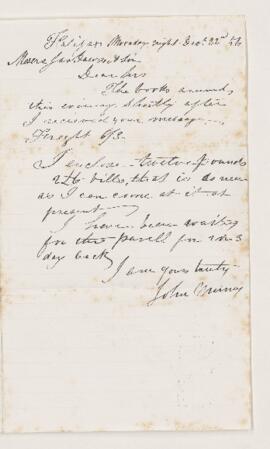 Halifax Monday night Dec. 22nd 56
Messrs Jas Dawson & Son
Dear Sirs
The books arrived
this evening shortly after
I received your message
Freight 6/3.
I enclose twelve pounds
in bills, that is as near
as I can come at it at
present
I have been waiting
for this parcell for 2 or 3
days back
I am yours truly
John